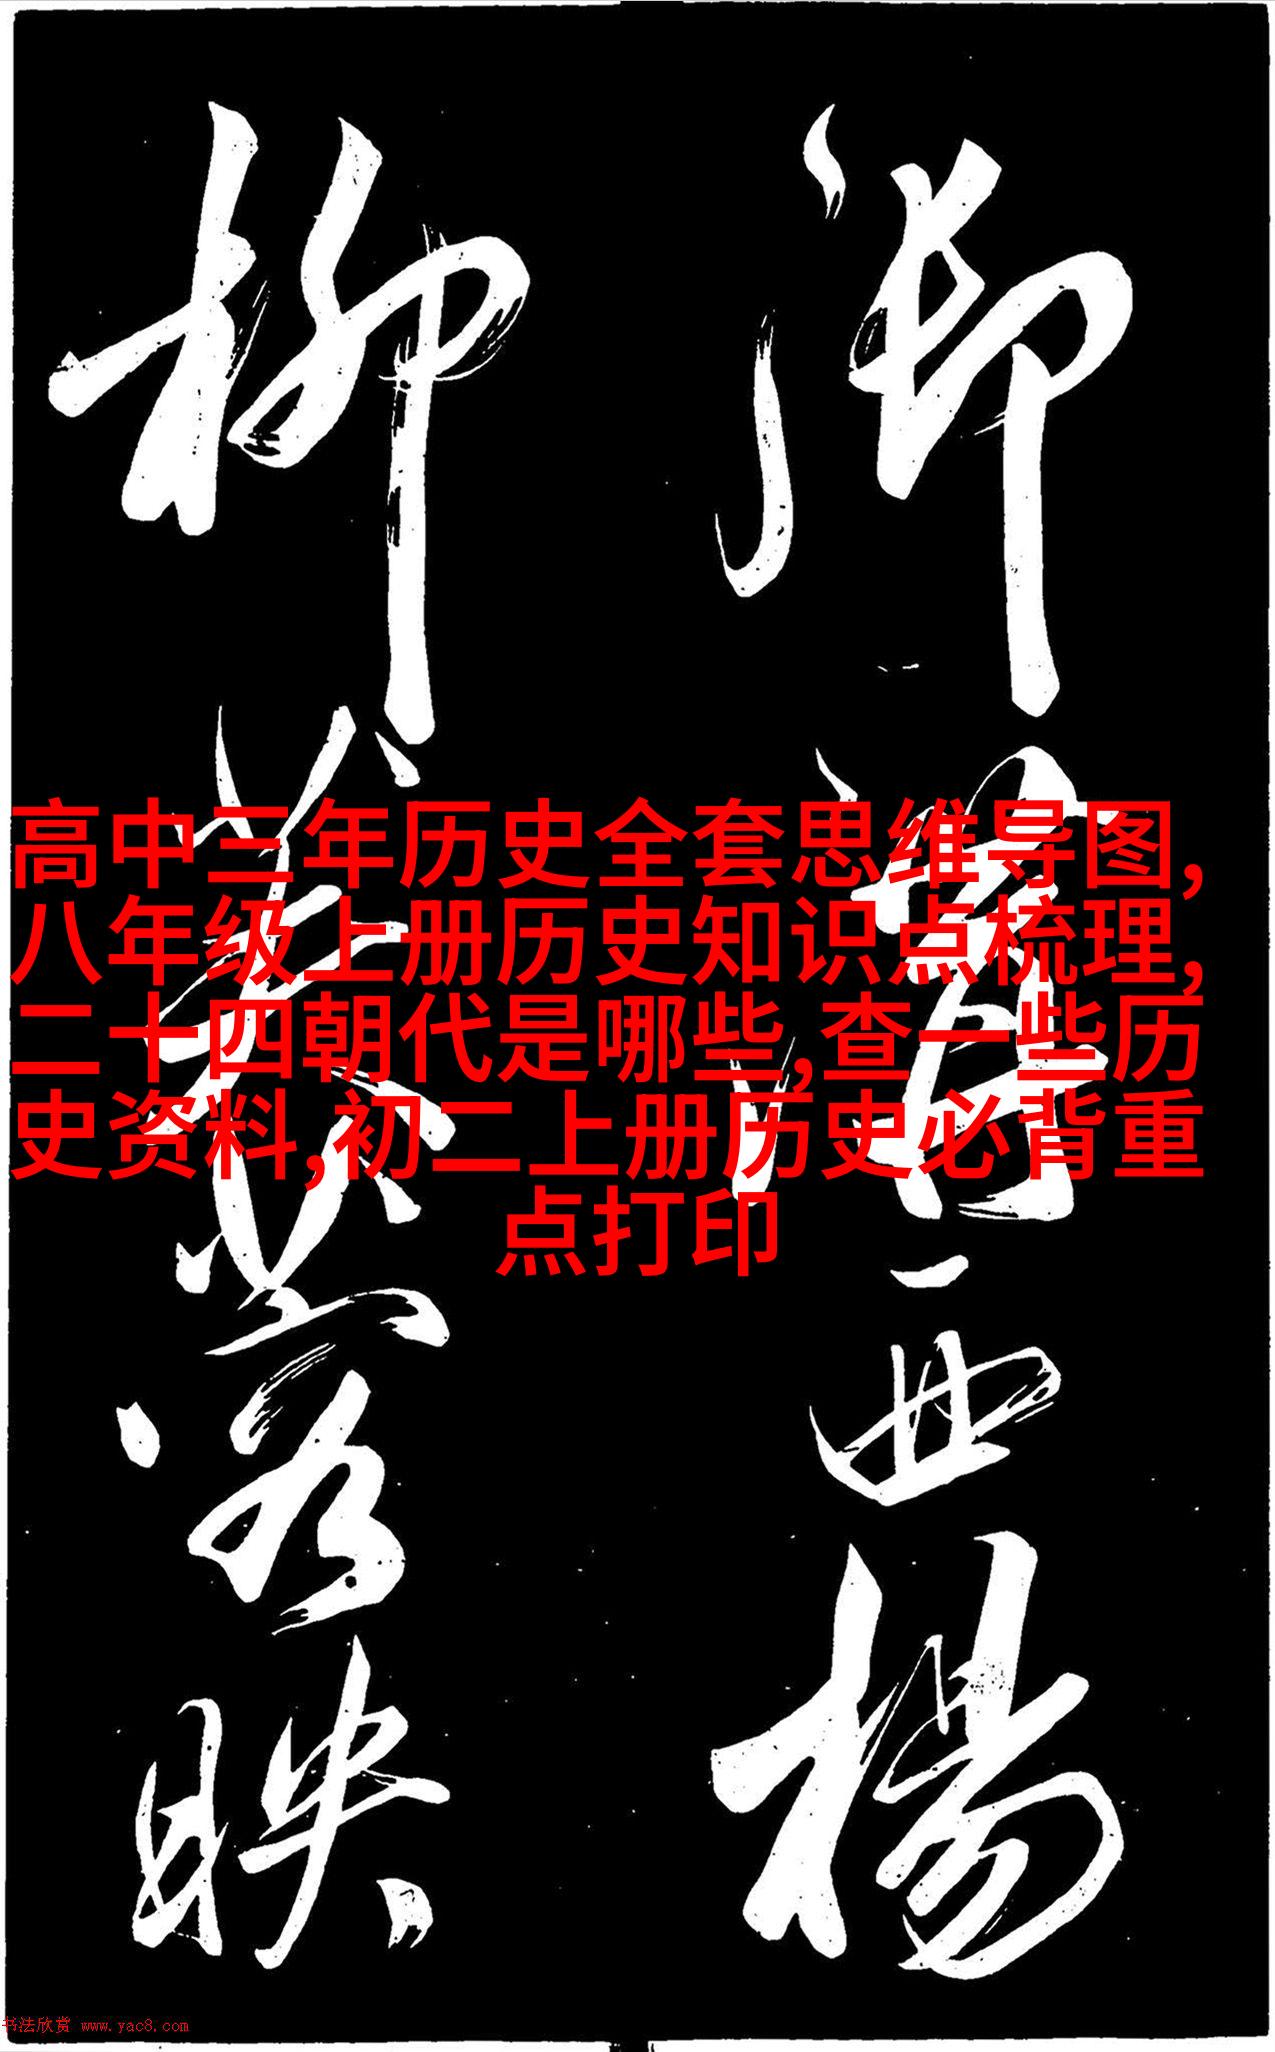 高中三年历史全套思维导图,
八年级上册历史知识点梳理,
二十四朝代是哪些,查一些历
史资料,初二上册历史必背重
点打印
西楊
柳映
书法欣赏 www.yac8.com